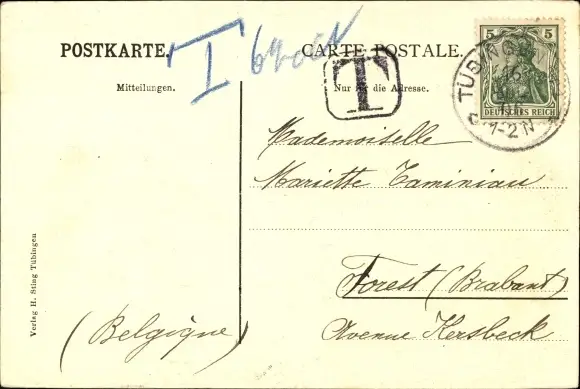 POSTKARTE.
CARTE POSTALE.
Mitteilungen.
Nur für die Adresse.
T
T
5 5
DEUTSCHES REICH
TÜBINGEN
1-2N
Mademoiselle
Mariette Taminiau
Forest (Brabant)
Avenue Kersbeck
(Belgique)
Verlag H. Sting Tübingen